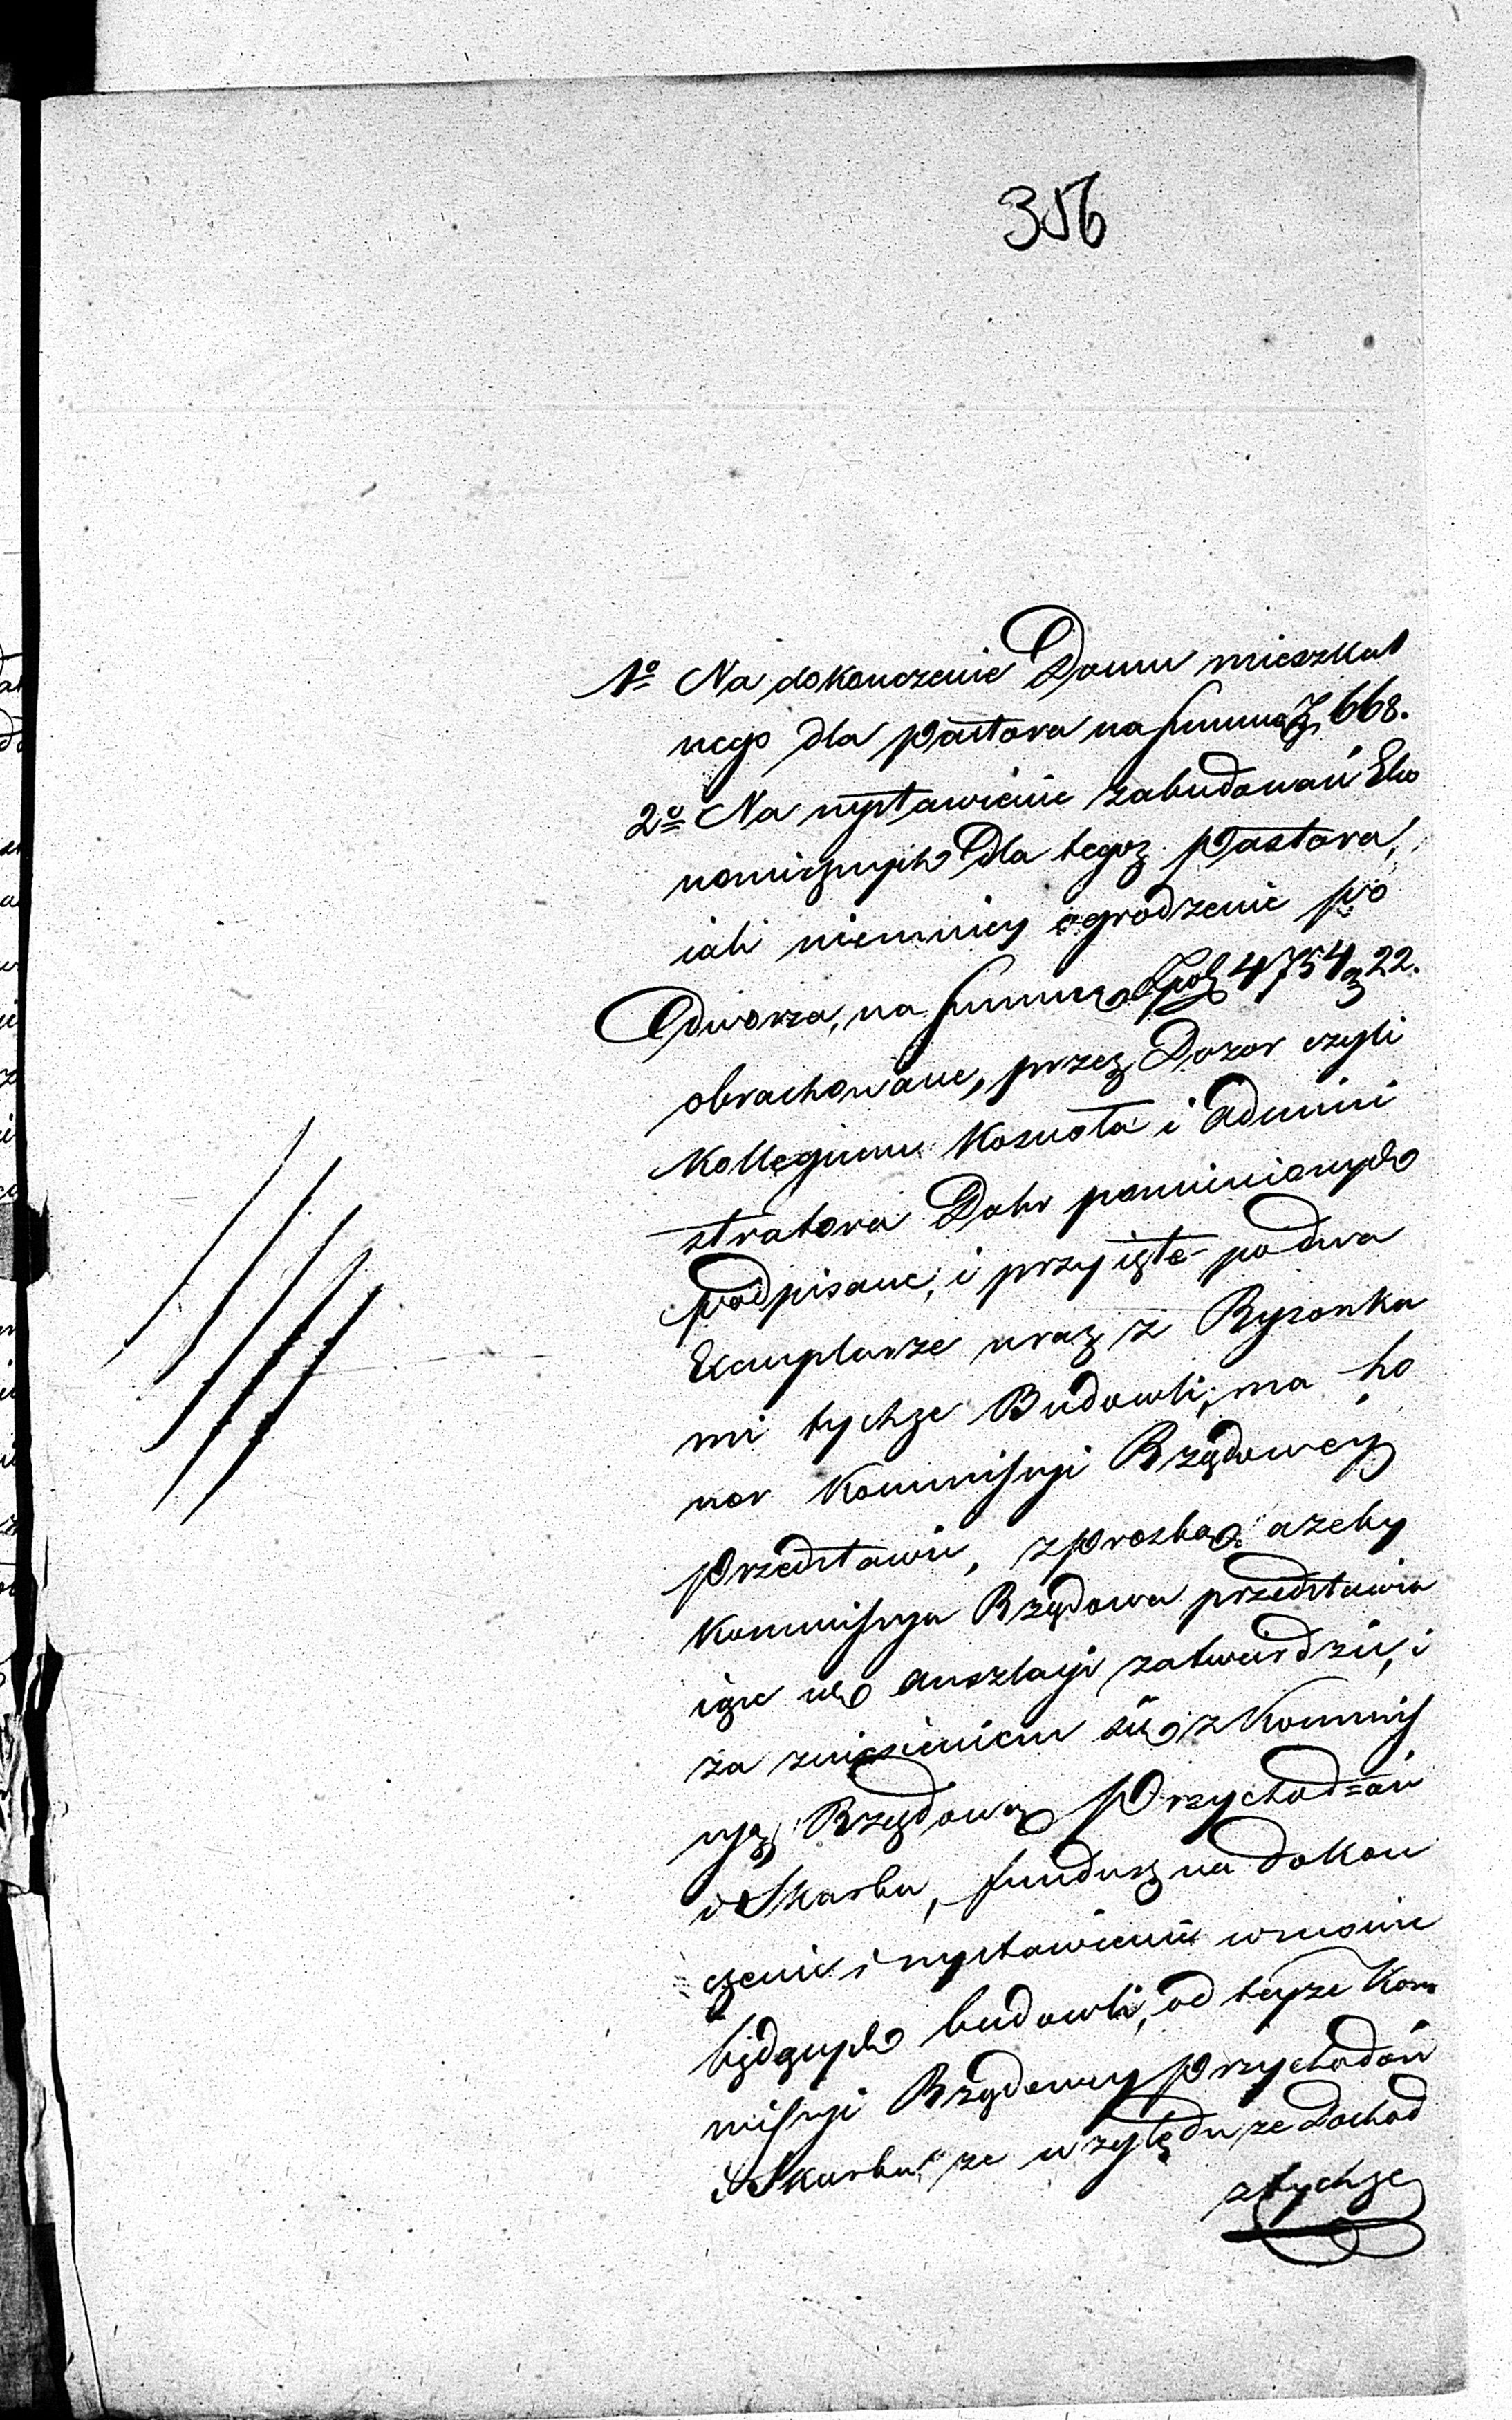 356
1º Na dokonczenie Domu mieszkal
nego dla Pastora na summę Z 668.
2º Na wystawienie zabudowań Eko
nomicznych dla tegoż Pastora,
iak niemniey ogrodzenie po
Dworza, na summę Zpol 4754 g 22.
obrachowane, przez Dozor czyli
Kollegium Koscioła i Admini
stratora Dobr pomienionych
podpisane, i przyięte po dwa
Exemplarze wraz z Rysonka
mi tychże Budowli; ma ho
nor Kommissyi Rządowéy
przedstawić, z prozbą ażeby
Kommissya Rządowa przedstawia
iące się Anszlagi zatwierdzić, i
za zniesieniem się z Kommis
syą Rządową Przychodów
i Skarbu, fundusz na dokoń
czenie i wystawienie wznosić
będących budowli, od teyże Kom
missyi Rządowey Przychodów
i Skarbu ze względu że dochod
z tychże